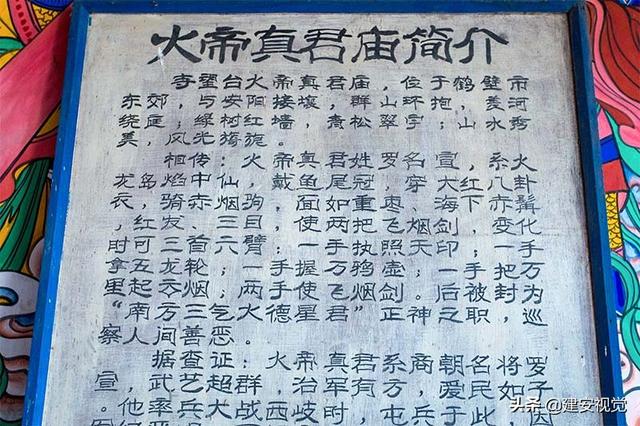 火帝真君庙简介
奇望台火帝真君庙，位于鹤壁市
东郊，与安阳接壤，群山环抱，羑河
绕庭；绿树红墙，煮松翠宇；山水秀
美，风光旖旎。
相传：火帝真君姓罗名宣，系火
龙岛焰中仙，戴鱼尾冠，穿大红八卦
衣，骑赤烟驹，面如重枣，海下赤髯
，红发、三目，使两把飞烟剑，变化
时可三首六臂：一手执照天印；一手
拿五龙轮；一手握万鸦壶；一手把万
里起云烟；两手使飞烟剑。后被封为
“南方三气火德星君”正神之职，巡
察人间善恶。
据查证：火帝真君系商朝名将罗
宣，武艺超群，治军有方，爱民如子
，他率兵大战西岐时，屯兵于此，因
头条 @建安视觉